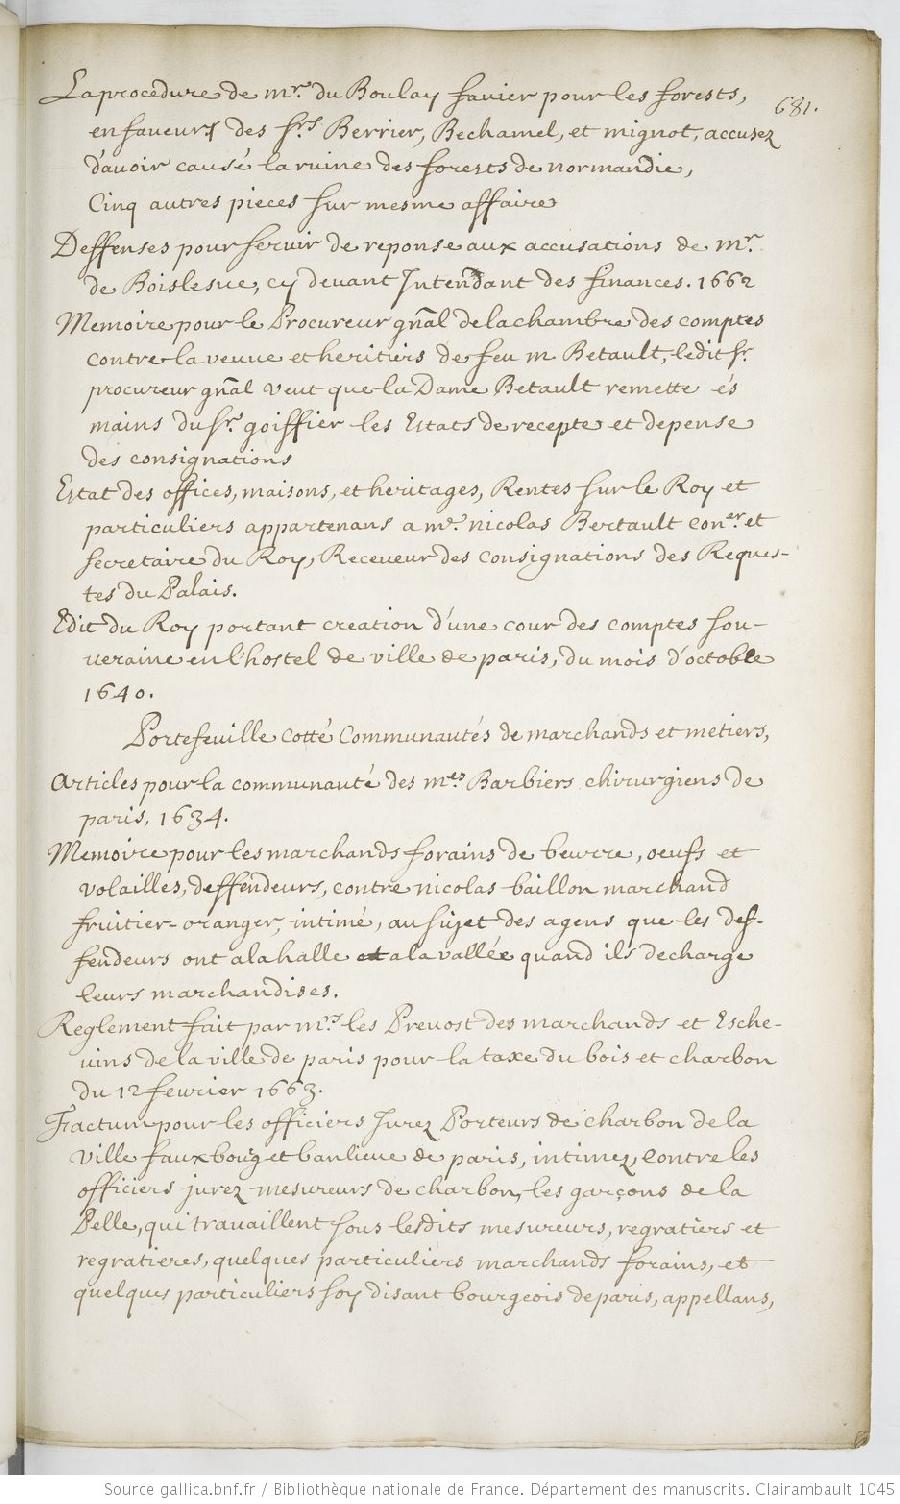 La procedure de mr. du Boulay favier pour les forests,
681.
en faveur des srs Berrier, Bechamel, et mignot, accusez
d'avoir causé la ruine des forests de normandie,
Cinq autres pieces sur mesme affaire
Deffenses pour servir de reponse aux accusations de mr.
de Boislesve, cy devant Intendant des finances. 1662
Memoire pour le Procureur gnãl de la chambre des comptes
contre la veuve et heritiers de feu m. Betault, ledit sr.
procureur gnãl veut que la Dame Betault remette és
mains du sr. goiffier les Estats de recepte et depense
des consignations
Estat des offices, maisons, et heritages, Rentes sur le Roy et
particuliers appartenans a mr. nicolas Bertault coner. et
secretaire du Roy, Receveur des consignations des Reques-
tes du Palais.
Edit du Roy portant creation d'une cour des comptes sou-
veraine en l'hostel de ville de paris, du mois d'octobre
1640.
Portefeuille cotté Communautés de marchands et metiers,
Articles pour la communauté des mes. Barbiers chirurgiens de
paris. 1634.
Memoire pour les marchands forains de beurre, oeufs et
volailles, deffendeurs, contre nicolas baillon marchand
fruitier-oranger, intimé, au sujet des agens que les def-
fendeurs ont a la halle et a la vallée quand ils decharge
leurs marchandises.
Reglement fait par mrs. les Prevost des marchands et Esche-
vins de la ville de paris pour la taxe du bois et charbon
du 12 fevrier 1663.
Factum pour les officiers Jurez Porteurs de charbon de la
ville fauxbourg et banlieue de paris, intimez, contre les
officiers jurez mesureurs de charbon, les garçons de la
Pelle, qui travaillent sous lesdits mesureurs, regratiers et
regratieres, quelques particuliers marchands forains, et
quelques particuliers soy disant bourgeois de paris, appellans,
Source gallica.bnf.fr / Bibliothèque nationale de France. Département des manuscrits. Clairambault 1045